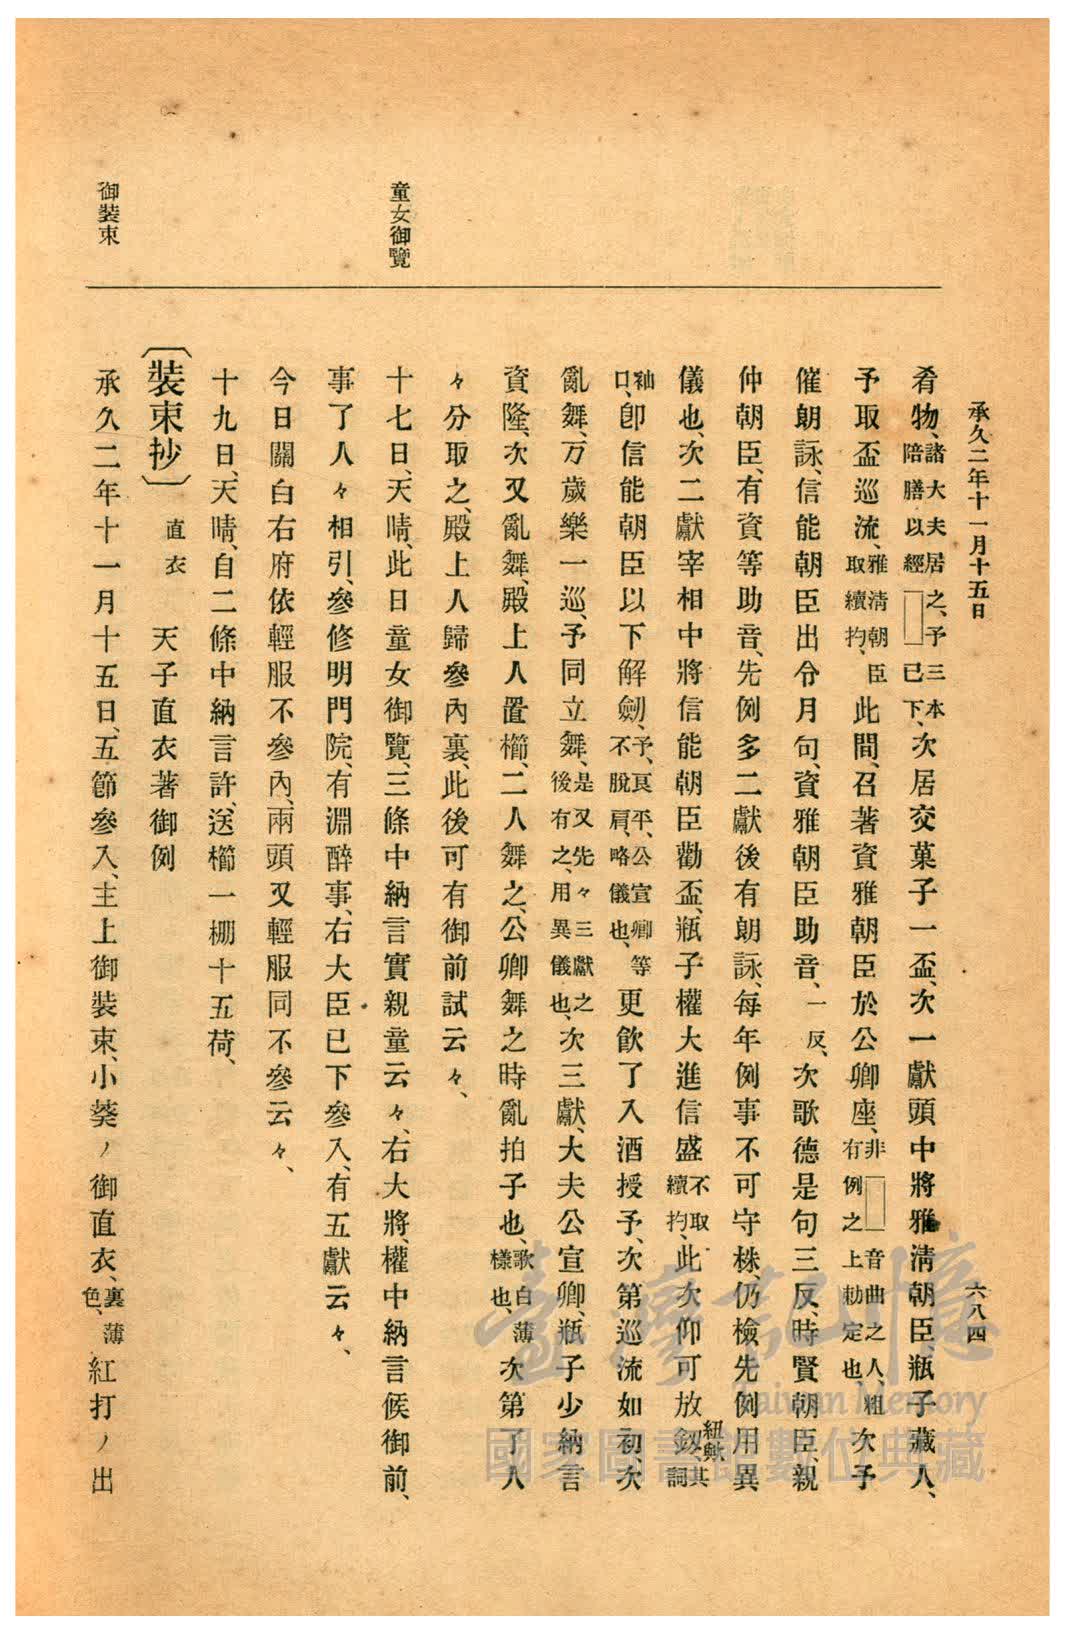 承久二年十一月十五日
六八四
肴物、諸大夫居之、予三本陪膳以經□已下、次居交菓子一盃、次一獻頭中將雅淸朝臣瓶子藏人、
予取盃巡流、雅淸朝臣取續杓、此間、召著資雅朝臣於公卿座、非□音曲之人、粗有例之上勅定也、次予
催朗詠、信能朝臣出令月句、資雅朝臣助音、一反、次歌德是句三反、時賢朝臣、親
仲朝臣、有資等助音、先例多二獻後有朗詠、每年例事不可守株、仍檢先例用異
儀也、次二獻宰相中將信能朝臣勸盃、瓶子權大進信盛不取續杓、此次仰可放釼、紐歟其詞
袖口、卽信能朝臣以下解劒、予、良平、公宣卿等不脫肩、略儀也、更飮了入酒授予、次第巡流如初、次
亂舞、万歲樂一巡、予同立舞、是又先々三獻之後有之、用異儀也、次三獻、大夫公宣卿、瓶子少納言
資隆、次又亂舞、殿上人置櫛、二人舞之、公卿舞之時亂拍子也、歌白薄樣也、次第了人
々分取之、殿上人歸參內裏、此後可有御前試云々、
童女御覽
十七日、天晴、此日童女御覽、三條中納言實親童云々、右大將、權中納言候御前、
事了人々相引、參修明門院、有淵醉事、右大臣已下參入、有五獻云々、
今日關白右府依輕服不參內、兩頭又輕服同不參云々、
十九日、天晴、自二條中納言許、送櫛一棚十五荷、
〔裝束抄〕 直衣 天子直衣著御例
御裝束
承久二年十一月十五日、五節參入、主上御裝束、小葵ノ御直衣、裏薄色、紅打ノ出
臺灣記憶
Taiwan Memory
國家圖書館數位典藏